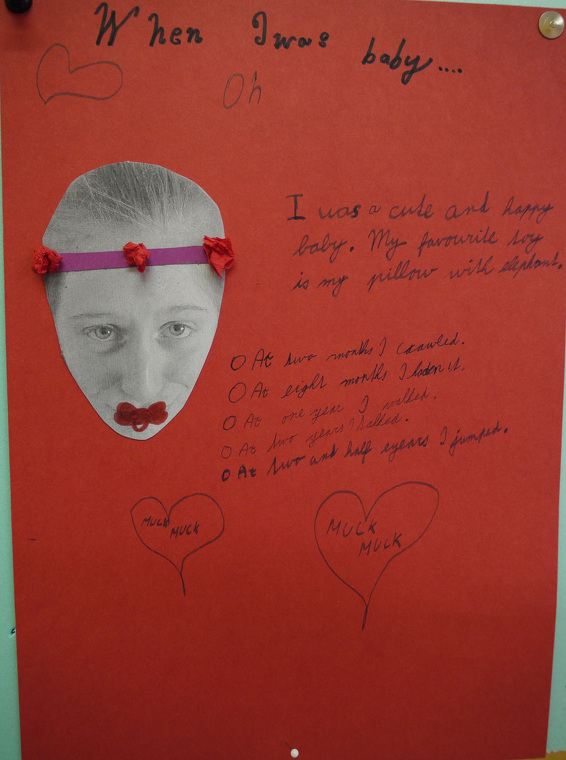 When I was baby....
Oh
I was a cute and happy
baby. My favourite toy
is my pillow with elephant.
At two months I crawled.
At eight months I
At one year I walked.
At two years I talked.
At two and half eyears I jumped.
MUCK
MUCK
MUCK
MUCK